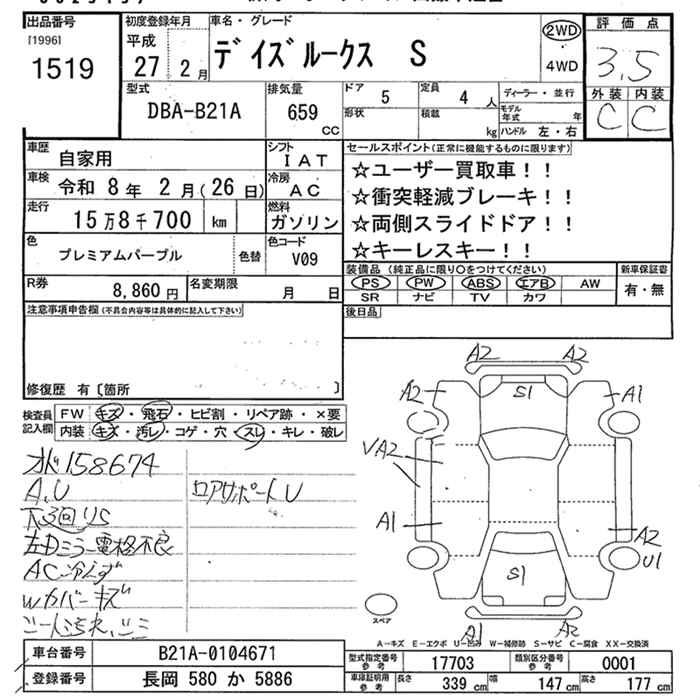 出品番号
[1996]
1519
初度登録年月
平成
27 2月
車名・グレード
デイズルークス S
2WD
・
4WD
評価点
3.5
外装 内装
C C
型式
DBA-B21A
排気量
659
CC
ドア
5
定員
4 人
形状
積載
kg
ディーラー・並行
モデル年式 年
ハンドル 左・右
車歴
自家用
シフト
IAT
車検
令和 8年 2月(26日)
冷房
AC
走行
15万8千700 km
燃料
ガソリン
色
プレミアムパープル
色替
色コード
V09
R券
8,860円
名変期限
月 日
セールスポイント(正常に機能するものに限ります)
☆ユーザー買取車!!
☆衝突軽減ブレーキ!!
☆両側スライドドア!!
☆キーレスキー!!
装備品(純正品に限り○をつけてください)
PS PW ABS エアB AW
SR ナビ TV カワ
新車保証書
有・無
後日品
注意事項申告欄(不具合内容等は具体的に記入して下さい)
修復歴 有〔箇所 〕
検査員
記入欄
FW キズ・飛石・ヒビ割・リペア跡・×要
内装 キズ・汚レ・コゲ・穴・スレ・キレ・破レ
158674
A,U
ロアサポートU
下3回りS
左Dミラー電格不良
AC冷えず
Wカバーキズ
A2 A2
A2 S1 A1
VA2
A1 A2
S1 U1
A1 A2
スペア
A-キズ E-エクボ U-凹み W-補修跡 S-サビ C-腐食 XX-交換済
車台番号
B21A-0104671
登録番号
長岡 580 か 5886
型式指定番号
参考
17703
類別区分番号
参考
0001
車庫証明用
参考
長さ
339 cm
幅
147 cm
高さ
177 cm